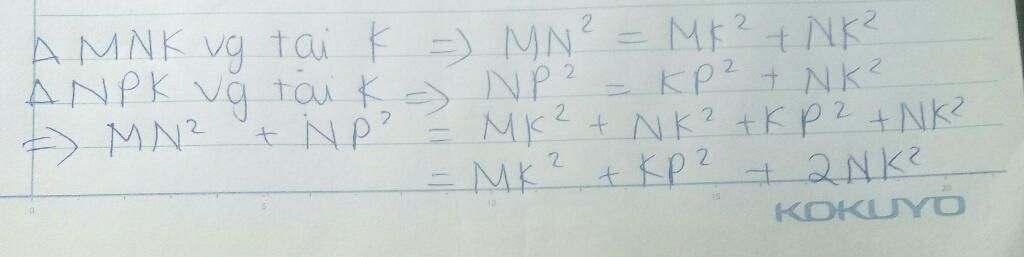 Δ MNK vg tại K => MN² = MK² + NK²
Δ NPK vg tại K => NP² = KP² + NK²
=> MN² + NP² = MK² + NK² + KP² + NK²
= MK² + KP² + 2NK²
0 5 10 15 20
KOKUYO